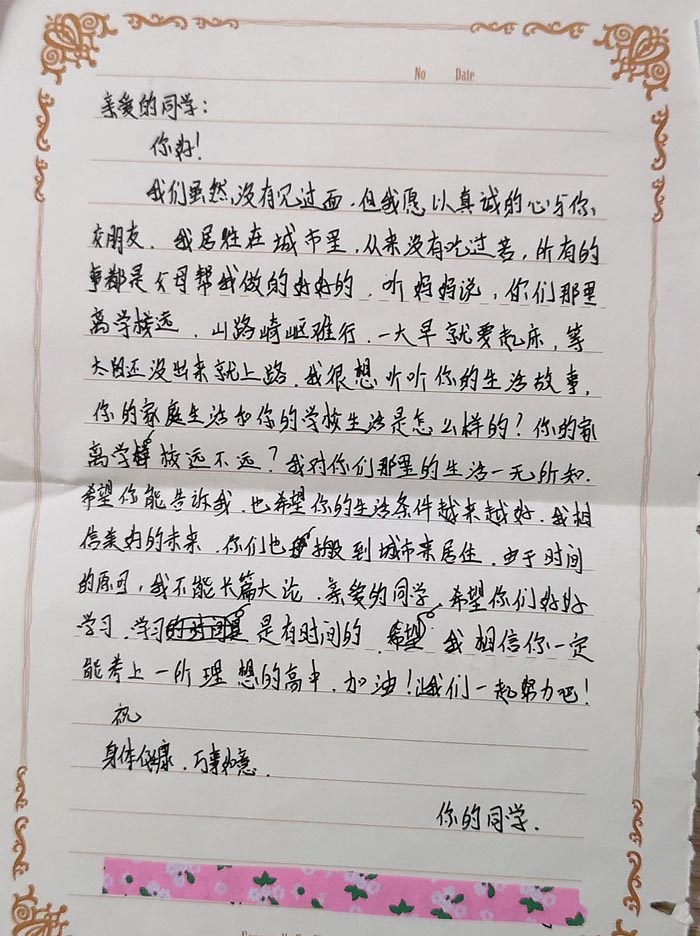 No Date
亲爱的同学：
你好！
我们虽然没有见过面，但我愿以真诚的心与你
交朋友．我居住在城市里，从来没有吃过苦，所有的
事都是父母帮我做的好好的．听妈妈说，你们那里
离学校远．山路崎岖难行．一大早就要起床，等
太阳还没出来就上路．我很想听听你的生活故事，
你的家庭生活和你的学校生活是怎么样的？你的家
离学校远不远？我对你们那里的生活一无所知．
希望你能告诉我．也希望你的生活条件越来越好．我相
信美好的未来．你们也搬到城市来居住．由于时间
的原因，我不能长篇大论．亲爱的同学，希望你们好好
学习．学习是有时间的．我相信你一定
能考上一所理想的高中．加油！让我们一起努力吧！
祝
身体健康．万事如意．
你的同学．